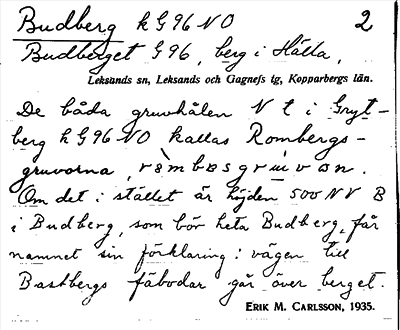 Budberg k G 96 NO 2
Budberget G 96, berg i Hälla,
Leksands sn, Leksands och Gagnefs tg, Kopparbergs län.
De båda gruvhålen N t i Gryt-
berg k G 96 NO kallas Rombergs-
gruvorna,
Om det i stället är höjden 500 NV B
i Budberg, som bör heta Budberg, får
namnet sin förklaring: vägen till
Bastbergs fäbodar går över berget.
ERIK M. CARLSSON, 1935.